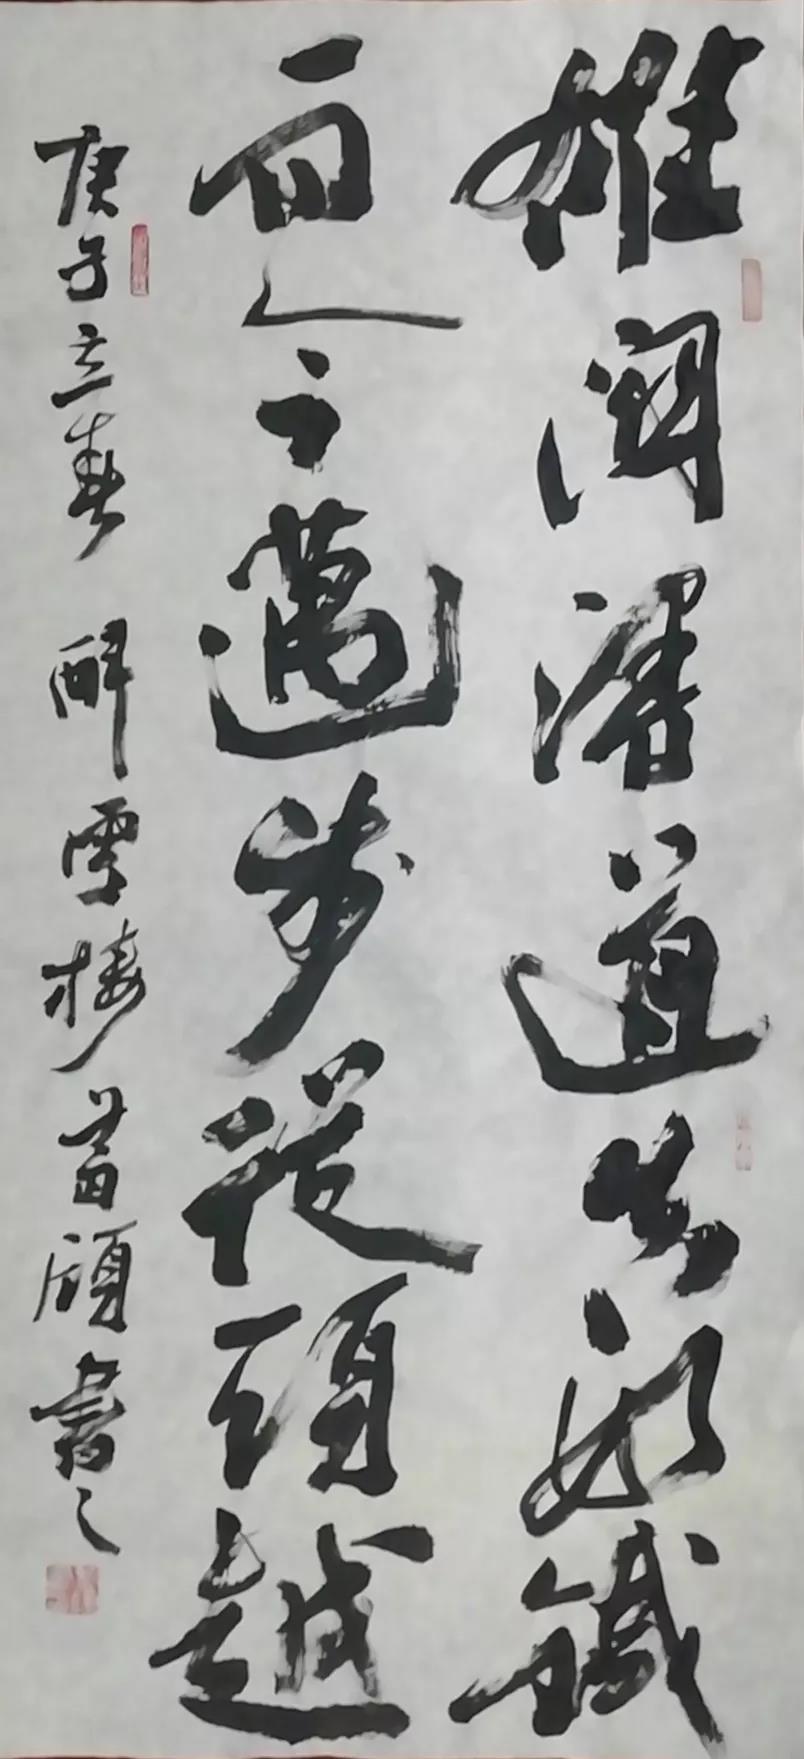 雄關漫道真如鐵
而今邁步從頭越
庚子立春 醉雪樓 書之